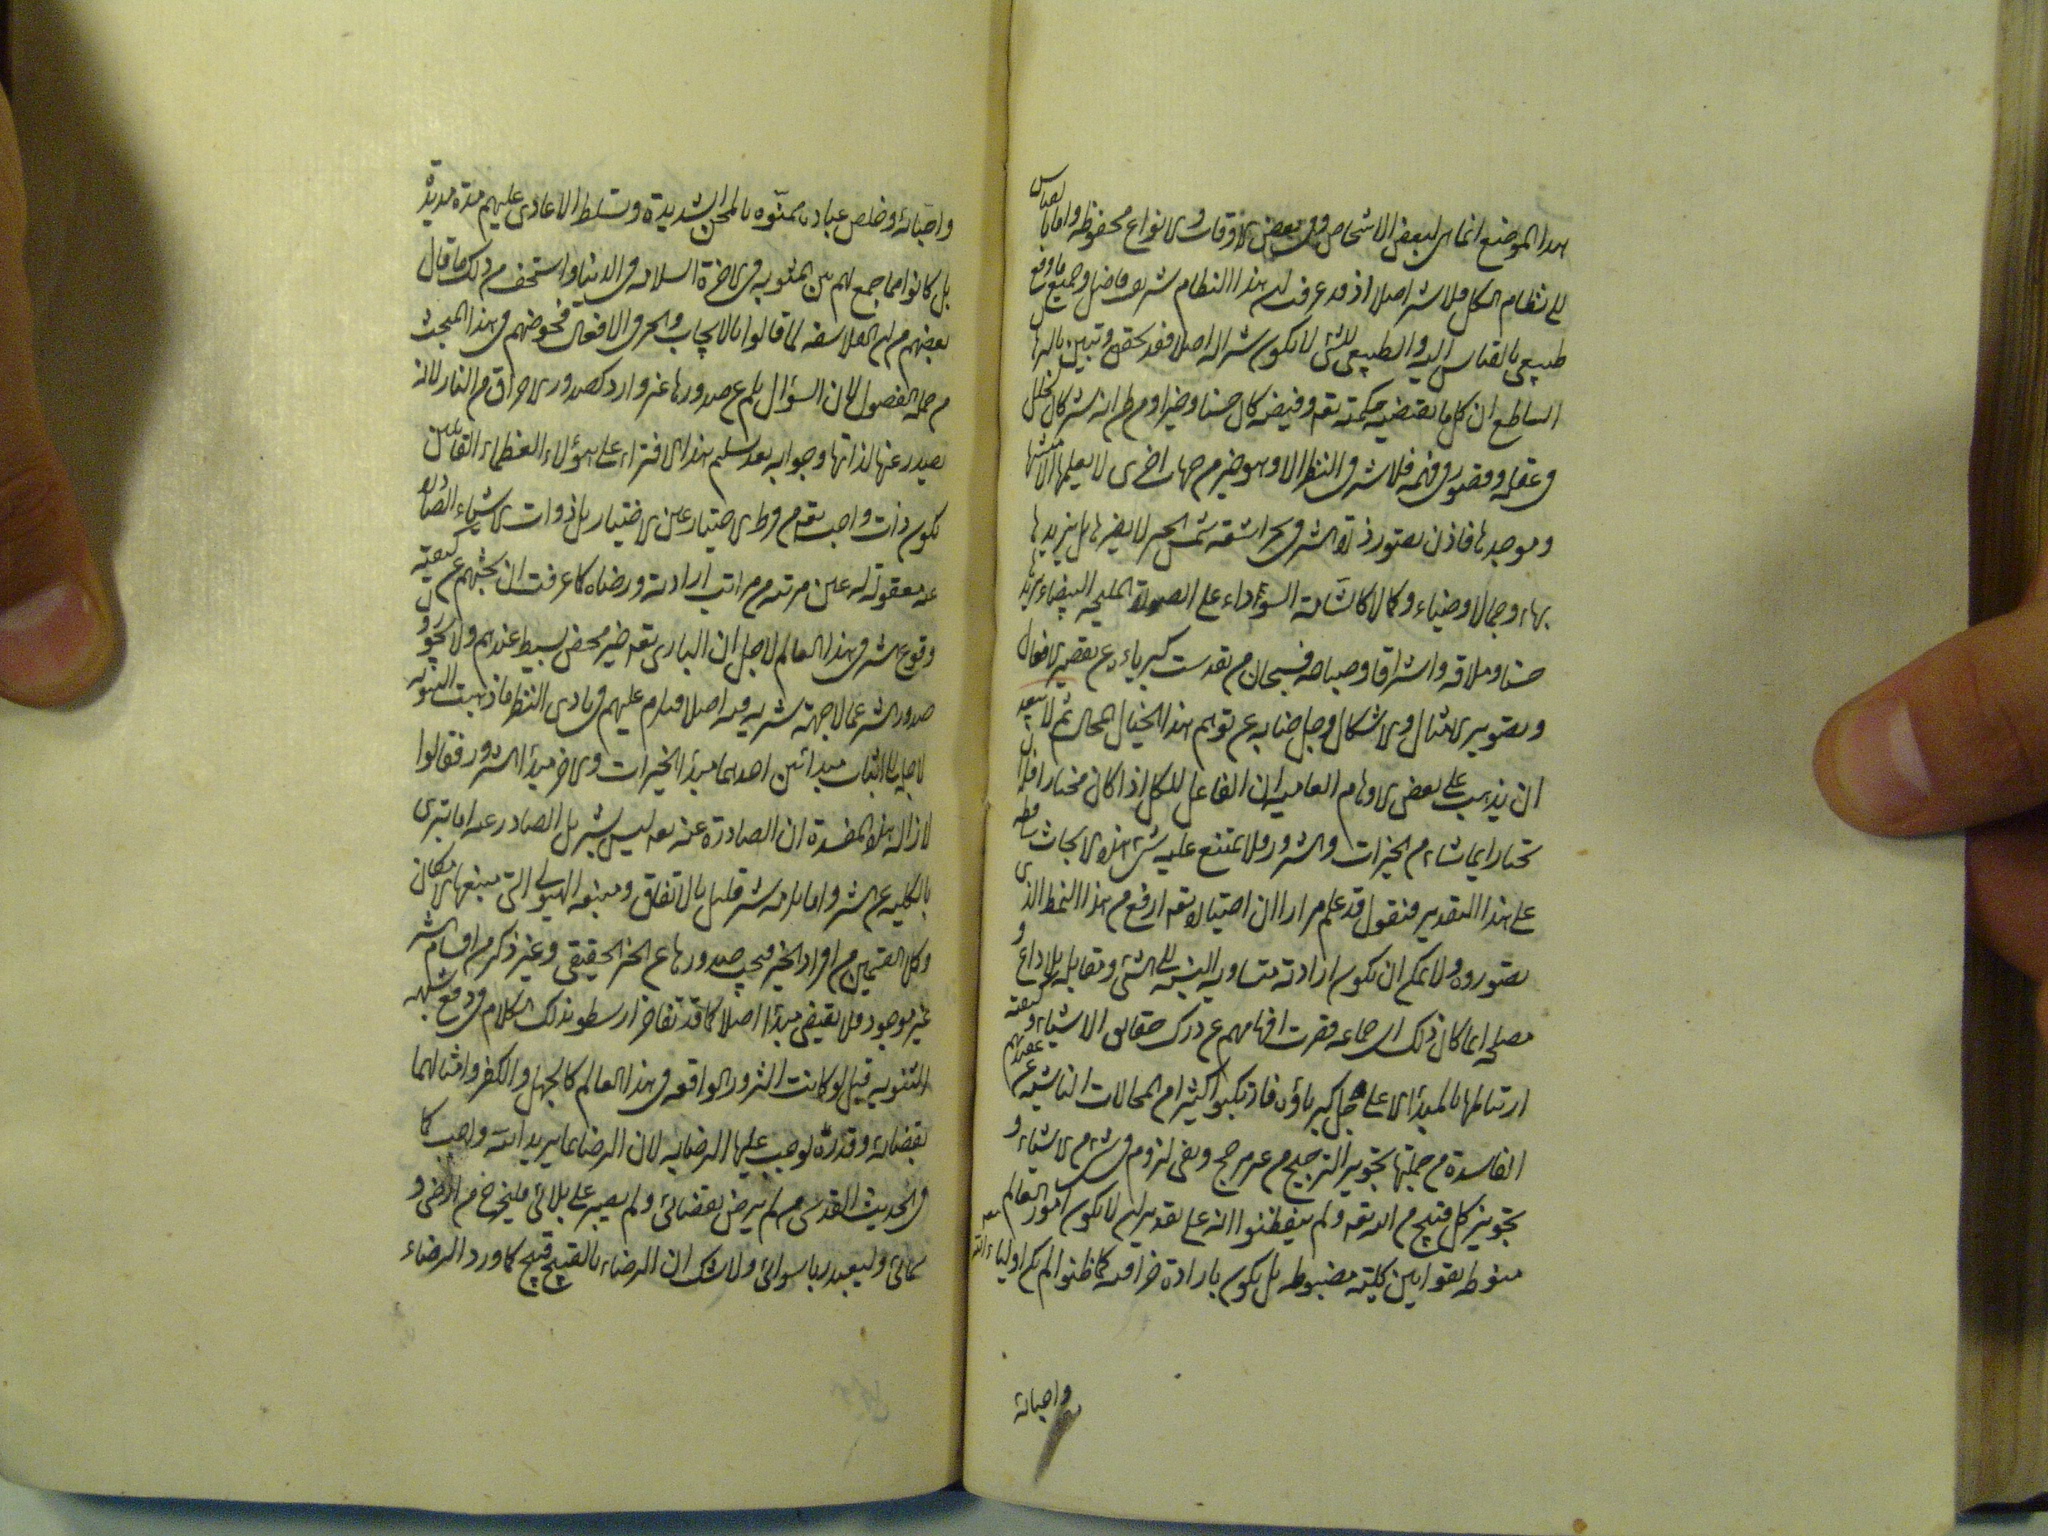 هذا الموضع انما هى لبعض الاشخاص وفى بعض الاوقات والانواع محفوظة واما بالقياس
الى نظام الكل فلا شر اصلا اذ قد عرفت ان هذا النظام شريف فاضل وجميع ما وقع
طبيعى بالقياس اليه والطبيعى للشئ لا يكون شرا له اصلا فقد تحقق وتبين بالبرهان
الساطع ان كل ما يقتضيه حكمته تعه وفيضه كان حسنا وخيرا ومن ظن انه شر كان لخلل
فى عقله وقصور فى فهمه فلا شر فى النظر الا وهو خير من جهات اخرى لا يعلمها الا منشئها
وموجدها فاذن تصور ذرة الشر فى بحر اشعة شمس الخير لا يضرها بل يزيدها
بهاء وجمالا وضياء وكمالا كالشامة السوداء على الصورة المليحة البيضاء يزيدها
حسنا وملاحة واشراقا وصباحة فسبحان من تقدست كبرياءه عن تقصير الافعال
وتصوير الامثال والاشكال وجل جنابه عن توهم هذا الخيال المحال ثم لا يبعد
ان يذهب على بعض الاوهام العامية ان الفاعل للكل اذا كان مختارا فله ان
يختار ايما شاء من الخيرات والشرور فلا يمتنع عليه شئ فهذه الابحاث ساقطة
على هذا التقدير فنقول قد علم مرارا ان اختياره تعه ارفع من هذا النمط الذى
تصوروه ولا يمكن ان يكون ارادته متساوية النسبة الى الشئ ومقابله بلا داع و
مصلحة انما كان ذلك راى جماعة قصرت افهامهم عن درك حقائق الاشياء وكيفية
ارتباطها بالمبدأ الاعلى جل كبرياؤه فارتكبوا كثيرا من المحالات الناشية عن عقولهم
الفاسدة من جملتها تجويز الترجيح من غير مرجح ونفى لزوم فى شئ من الاشياء و
تجويز كل قبيح من الله تعه ولم يتفطنوا انه على تقديرهم لا يكون امور العالم
منوطة بقوانين كلية مضبوطة بل يكون بارادة جزافية كما ظنوا لم يكن اولياء الله تعه
واحبائه
واحبائه وخلص عباده ممنوه بالمحن الشديدة وتسلط الاعادى عليهم مدة مديدة
بل كانوا مما جمع لهم بين المثوبة فى الاخرة السلامة فى الدنيا واستخف من ذلك ما قال
بعضهم من ان الفلاسفة لما قالوا بالايجاب والجبر فى الافعال فخوضهم فى هذا المبحث
من جملة الفضول لان السؤال بلم عن صدورها غير وارد كصدور الاحراق من النار لانه
يصدر عنها لذاتها وجوابه بعد تسليم هذا الافتراء على هؤلاء العظماء القائلين
بكون ذات واجب تعه من فرط الاختيار عين الاختيار بل ذوات الاشياء الصادرة
عنه معقولة له عين مرتبة من مراتب ارادته ورضاه كما عرفت ان بحثهم عن كيفية
وقوع الشر فى هذا العالم لاجل ان البارى تعه خير محض بسيط عندهم ولا يجوزون
صدور الشر عما لا جهة شرية فيه اصلا فيلزم عليهم فى بادى النظر ما ذهبت الثنوية
لاجله الى اثبات مبدأين احدهما مبدأ الخيرات والاخر مبدأ الشرور فقالوا
لازالة هذه المفسدة ان الصادرة عنه تعه ليس بشر بل الصادر عنه اما تبرى
بالكلية عن الشر واما يلزمه شر قليل بالاتفاق ومنبعه الهيولى التى منبعها الامكان
وكل القسمين من افراد الخير فيجب صدورها عن الخير الحقيقى وغير ذكر من اقسام الشر
غير موجود فلا يقتضى مبدأ اصلا كما قد تفاخر ارسطو بذلك الكلام فى دفع شبهة
الثنوية قيل لو كانت الشرور الواقعة فى هذا العالم كالجهل والكفر وامثالهما
بقضائه وقدره لوجب علينا الرضا به لان الرضا بما يريد الله واجب كما
فى الحديث القدسى من لم يرض بقضائى ولم يصبر على بلائى فليخرج من ارضى و
سمائى وليعبد ربا سوائى ولا شك ان الرضاء بالقبيح قبيح كما ورد الرضاء